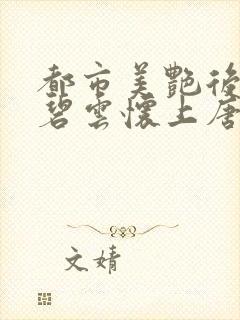 都市美艷後
碧雲懷上唐
文婧